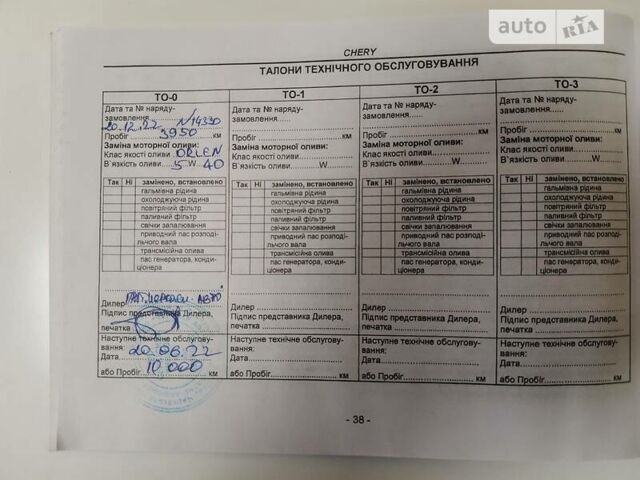 auto RIA
CHERY
ТАЛОНИ ТЕХНІЧНОГО ОБСЛУГОВУВАННЯ
ТО-0
Дата та № наряду-
замовлення......
20.12.22 N14330
Пробіг 3950 км
Заміна моторної оливи:
Клас якості оливи ORLEN
В`язкість оливи 5 W 40
Так Ні замінено, встановлено
гальмівна рідина
охолоджуюча рідина
повітряний фільтр
паливний фільтр
свічки запалювання
приводний пас розподі-
льчого вала
трансмісійна олива
пас генератора, конди-
ціонера
Дилер
Підпис представника Дилера,
печатка
Наступне технічне обслугову-
вання:
Дата 20.06.22
або Пробіг 10 000 км
ТО-1
Дата та № наряду-
замовлення......
Пробіг км
Заміна моторної оливи:
Клас якості оливи
В`язкість оливи W
Так Ні замінено, встановлено
гальмівна рідина
охолоджуюча рідина
повітряний фільтр
паливний фільтр
свічки запалювання
приводний пас розподі-
льчого вала
трансмісійна олива
пас генератора, конди-
ціонера
Дилер
Підпис представника Дилера,
печатка
Наступне технічне обслугову-
вання:
Дата
або Пробіг км
ТО-2
Дата та № наряду-
замовлення......
Пробіг км
Заміна моторної оливи:
Клас якості оливи
В`язкість оливи W
Так Ні замінено, встановлено
гальмівна рідина
охолоджуюча рідина
повітряний фільтр
паливний фільтр
свічки запалювання
приводний пас розподі-
льчого вала
трансмісійна олива
пас генератора, конди-
ціонера
Дилер
Підпис представника Дилера,
печатка
Наступне технічне обслугову-
вання:
Дата
або Пробіг км
ТО-3
Дата та № наряду-
замовлення......
Пробіг км
Заміна моторної оливи:
Клас якості оливи
В`язкість оливи W
Так Ні замінено, встановлено
гальмівна рідина
охолоджуюча рідина
повітряний фільтр
паливний фільтр
свічки запалювання
приводний пас розподі-
льчого вала
трансмісійна олива
пас генератора, конди-
ціонера
Дилер
Підпис представника Дилера,
печатка
Наступне технічне обслугову-
вання:
Дата
або Пробіг км
- 38 -